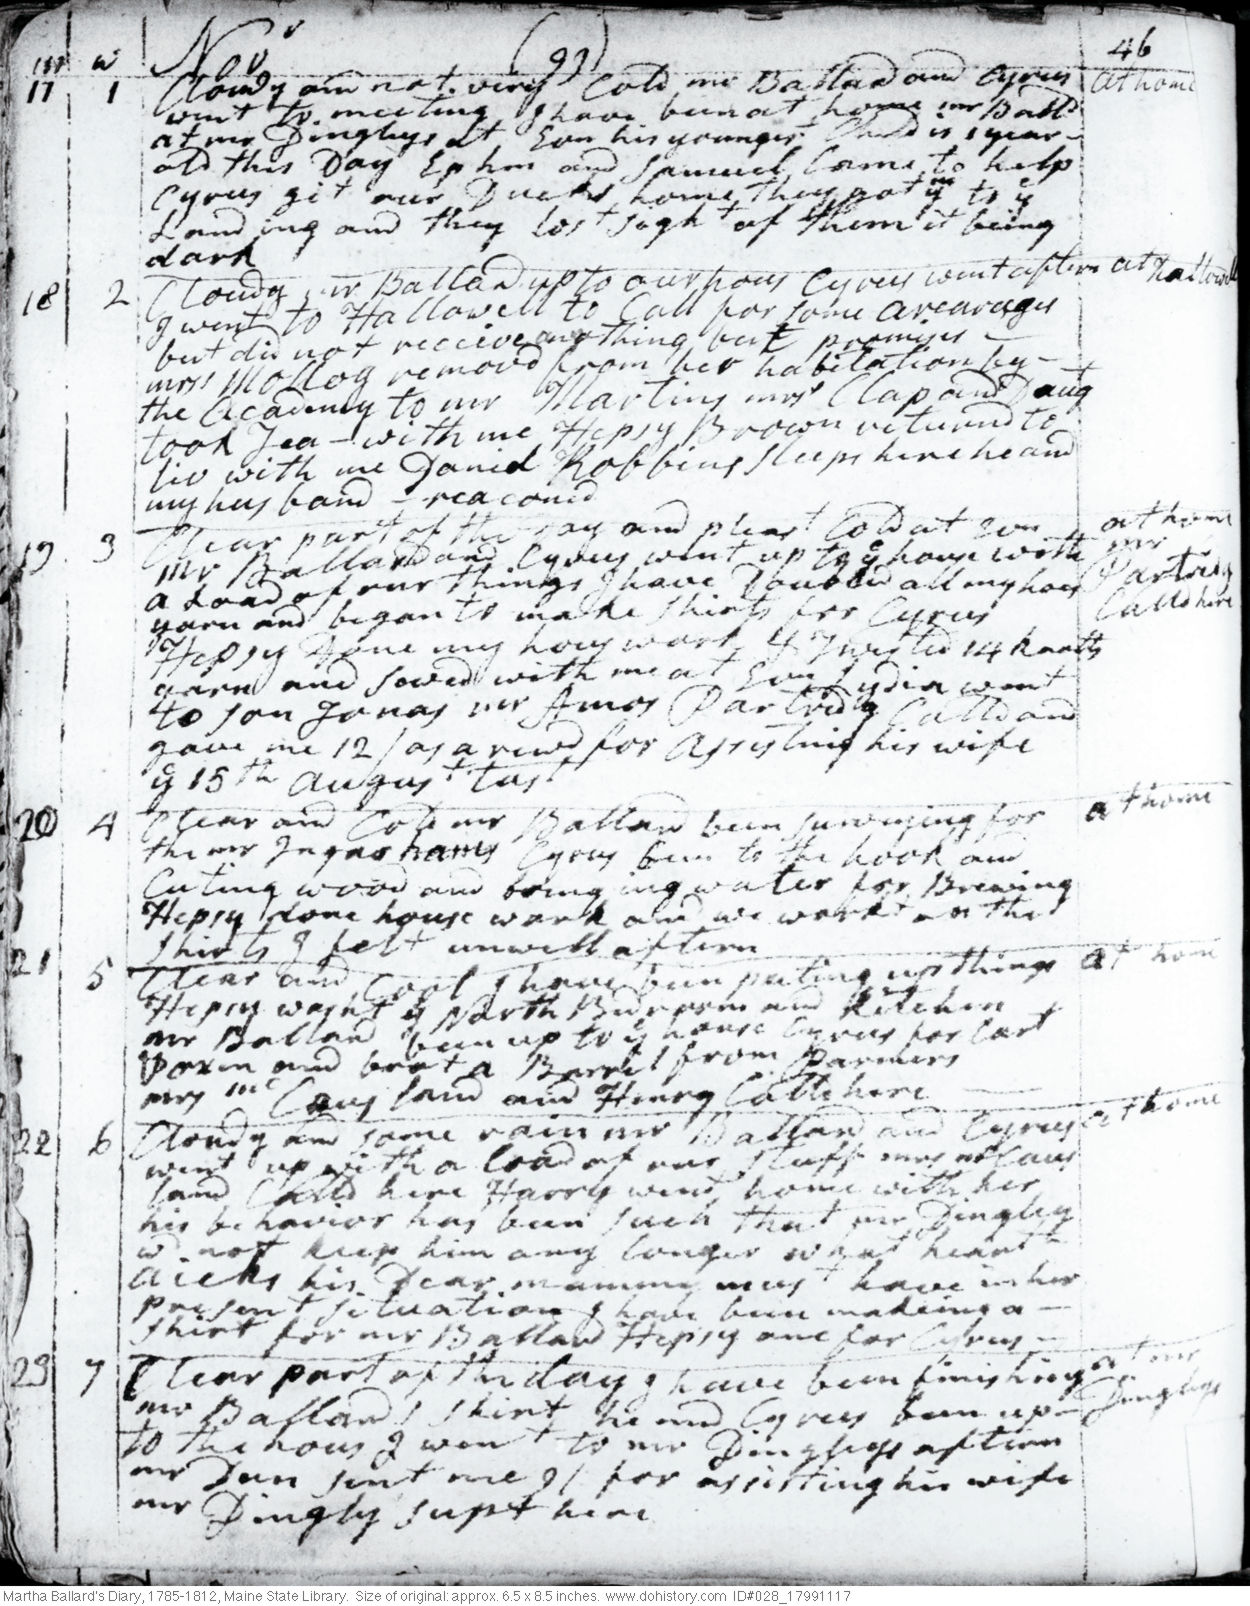 m w Novr (99) 46
17 1 Cloudy and not very Cold mr Ballard and Cyrus at home
went to meeting I have been at home mr Balld
at mr Dingleys at Evn his youngest Child is 1 year
old this Day Ephm and Samuel Came to help
Cyrus git our Ducks home they got ym to ye
Landing and they lost sight of them it being
dark
18 2 Cloudy mr Ballard up to our hous Cyrus went aftern at hallowell
I went to Hallowell to Call for some arearages
but did not receive any thing but promises
mrss Mollog removd from her habitation by
the Academy to mr Martins mrs Clap and Daug
took Tea with me Hepsy Brown returnd to
liv with me Daniel Robbins sleeps here he and
my husband reaconed
19 3 Clear part of the day and pleast Cold at Evn at home
mr Ballard and Cyrus went up to ye house with mr
a Load of our things I have Doubld all my hoes Partridg
yarn and began to make shirts for Cyrus Calld here
Hepsy Done my hous work & Twisted 14 knotts
yarn and sowed with me at Evn Lydia went
to son Jonas mr Amos Partridg Calld and
gave me 12/ as a rewd for assisting his wife
ye 15th august last
20 4 Clear and Cold mr Ballard been surveying for at home
the mr Ingerhams Cyrus been to the hook and
Cuting wood and bringing water for Brewing
Hepsy done house work and we workt on the
shirts I felt unwell aftern
21 5 Clear and Cool I have been puting up things at home
Hepsy washt ye North Bedroom and kitchen
mr Ballard been up to ye house Cyrus for Cart
oxen and brot a Barrel from Parmers
mrs mc Causland and Henry Calld here
22 6 Cloudy and some rain mr Ballard and Cyrus at home
went up with a load of our stuff mrs mcCaus
land Calld here Harry went home with her
his behavior has been such that mr Dingley
wd not keep him any longer what heart
aichs his Dear mammy must have in her
present situation I have been makeing a
shirt for mr Ballard Hepsy one for Cyrus
23 7 Clear part of the day I have been finishing at mr
mr Ballards shirt he and Cyrus been up Dingleys
to the hous I went to mr Dingleys aftern
mr Dun sent me 9/ for assisting his wife
mr Dingly supt here
Martha Ballard's Diary, 1785-1812, Maine State Library. Size of original: approx. 6.5 x 8.5 inches. www.dohistory.com ID#028_17991117